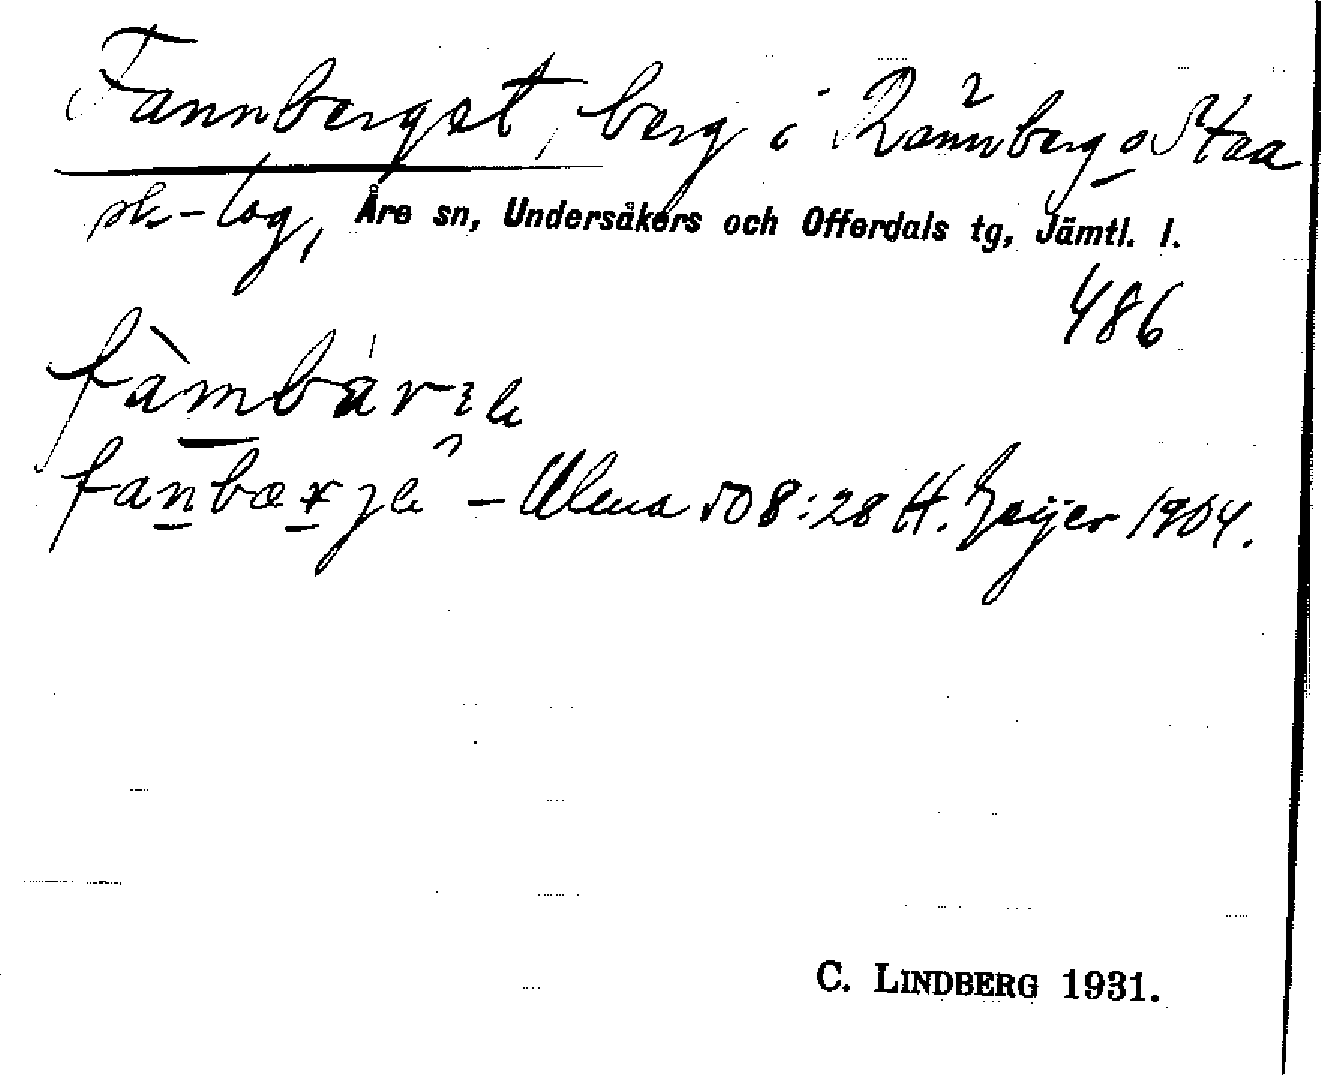 Fannberget, berg i Rännberg o Staa
sk-lag, Åre sn, Undersåkers och Offerdals tg, Jämtl. l.
486
fàmbár
fanbærje - Ulma 508:28 H. Geijer 1904.
C. LINDBERG 1931.